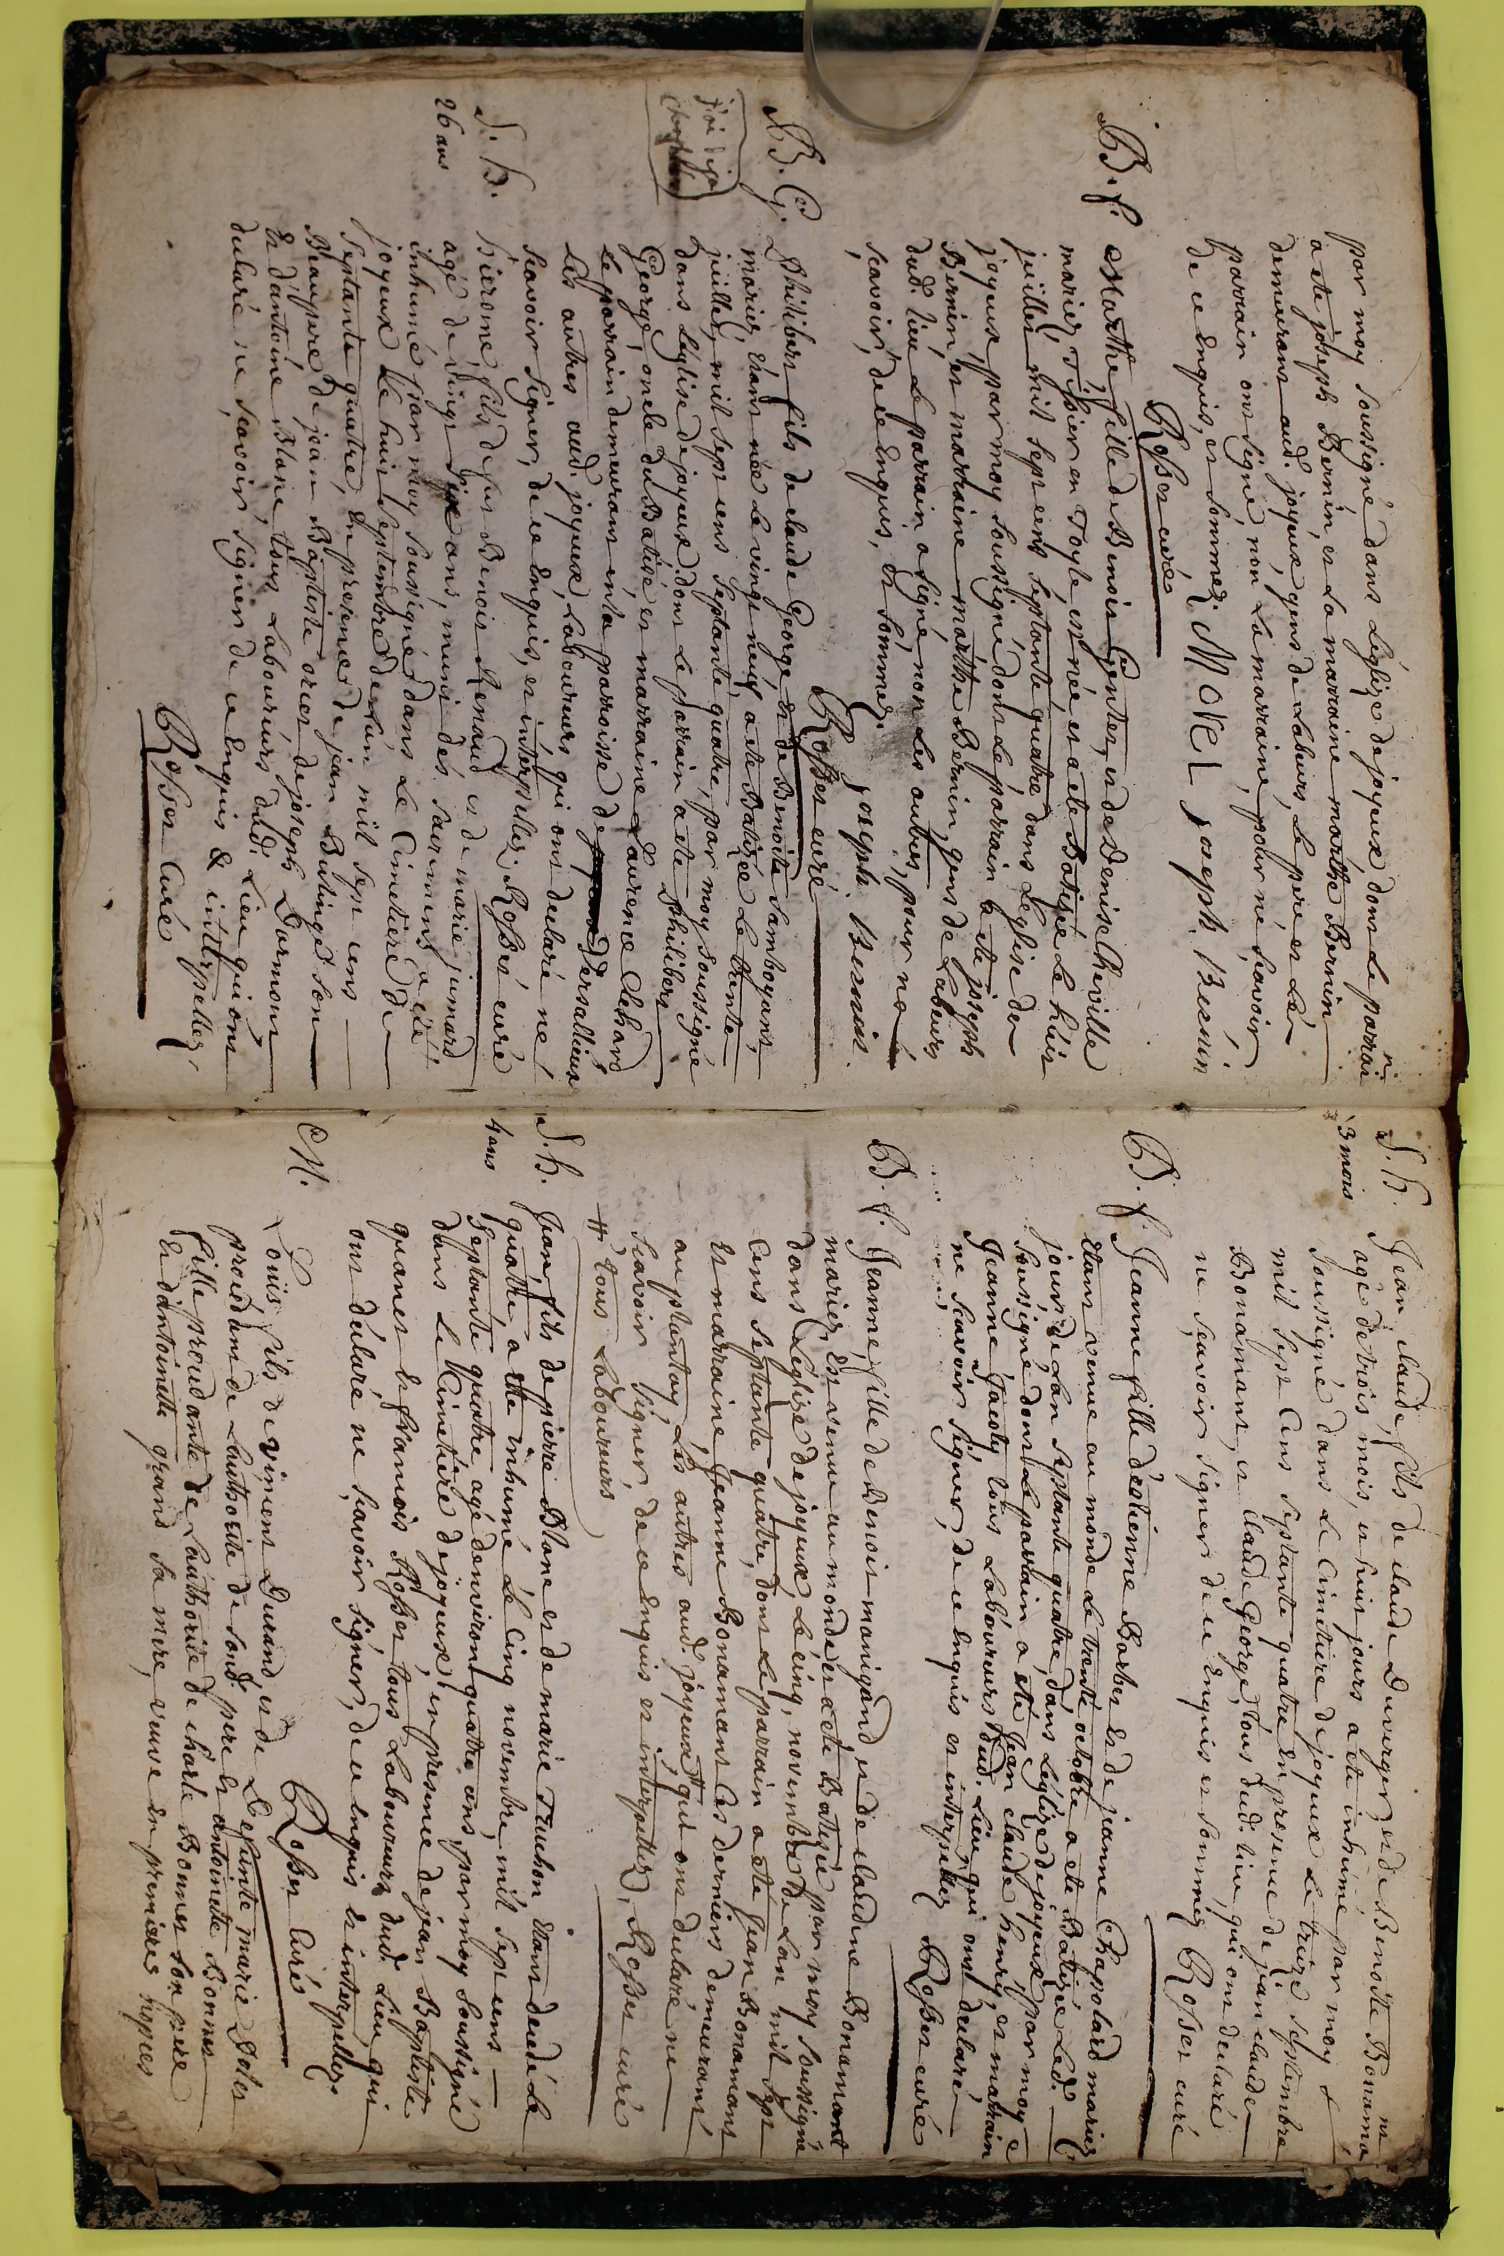 par moy soussigné dans Léglize de joyeux dont Le parrain
a eté joseph Bernin et La marraine marthe Bernin
demeurant aud. joyeux, gens de Labeurs, Le pere et Le
parrain ont signé, non La marraine, pour ne sçavoir
de ce Enquis, et sommez. MOREL joseph. Bernin
Rosset curé
B. f. Marthe fille de Benoit Gentet, et de Denise Cheville
mariez, Tissier en Toyle est née et a eté Batizée Le huit
juillet mil sept cent septante quatre dans Leglise de
joyeux, par moy soussigné dont Le parrain a eté joseph
Bernin, et marraine marthe Bernin, gens de Labeurs
dud. Lieu Le parrain a signé non Les autres, pour ne
scavoir, de ce Enquis, et sommez. joseph. Bernin.
Rosset curé
B. G. Philibert fils de claude George, et de Benoite Samboyant,
mariez, étant née Le vingt neuf a eté Batizée Le trente
juillet, mil sept cens septante quatre, par moy soussigné
dans Léglise de joyeux. dont Le parrain a eté philibert
George, oncle du Batisé, et marraine Laurence Chehard
Le parrain demeurant en La parroisse de Versallieux
Les autres aud. joyeux, Laboureurs, qui ont declaré ne
scavoir signer, de ce Enquis, et interpellez. Rosset curé
j'ai deja
S. h. hierome, fils de feu Benoit Renaud et de marie jumard
26 ans agé de vingt six ans, muni des sacremens a été
inhumé par moy soussigné dans Le Cimetiere de
joyeux Le huit septembre de L'an mil sept cens
septante quatre, En presence de jan Butinge son
Beaupere de jean Baptiste orcet de joseph Dormont
Et d'antoine Blanc tous Laboureurs dud. Lieu qui ont
declaré ne scavoir signer de ce Enquis & interpellez,
Rosset Curé
S. h. Jean claude, fils de claude Duverger, et de Benoite Bonamant
3 mois agé de trois mois, et huit jours a eté inhumé par moy
soussigné dans Le Cimetiere de joyeux Le treize septembre
mil sept Cens septante quatre En presence de jean claude
Bonamant, et claude George, tous dud. Lieu, qui ont declaré
ne sçavoir signer de ce Enquis et sommez Rosset curé
B. f. Jeanne fille d'estienne Barbet et de jeanne Chapolard mariez
étant venue au monde Le trente octobre a eté Batizée Led.
jour de L'an septante quatre, dans Léglize de joyeux par moy
soussigné dont Le parrain a eté Jean claude henry, et marraine
Jeanne Jacoly, tous Laboureurs dud. Lieu qui ont declaré
ne scavoir signer, de ce Enquis et interpellez Rosset curé
B. f. Jeanne, fille de Benoit manigand et de claudine Bonamant
mariez, Est venue au monde et a eté Batizée par moy soussigné
dans Léglize de joyeux, Le cinq, novembre de L'an mil sept
Cens septante quatre, dont Le parrain a eté Jean Bonamant
Et marraine Jeanne Bonamant Ces derniers demeurant
au plantay, Les autres aud. joyeux # qui ont declaré ne
scavoir signer, de ce Enquis et interpellez, Rosset curé
# tous Laboureurs
S. h. Jean, fils de pierre Blanc et de marie Fauchon étant decedé Le
4 ans quatre a eté inhumé Le Cinq novembre, mil sept cens
septante quatre, agé d'environ quatre ans, par moy soussigné
dans Le Cimetiere de joyeux, en presence de jean Baptiste
quanet Et francois Rosset tous Laboureurs dud. Lieu qui
ont declaré ne sçavoir signer, de ce enquis Et interpellez.
Rosset Curé
M. Louis fils de vincent Durand et de Defunte marie Dolet
procédant de Lauthorité de sond. pere Et antoinette Bonnet
fille procédante de Lauthorité de charle Bonnet son pere
Et d'antoinette grand sa mere, veuve en premieres nopces